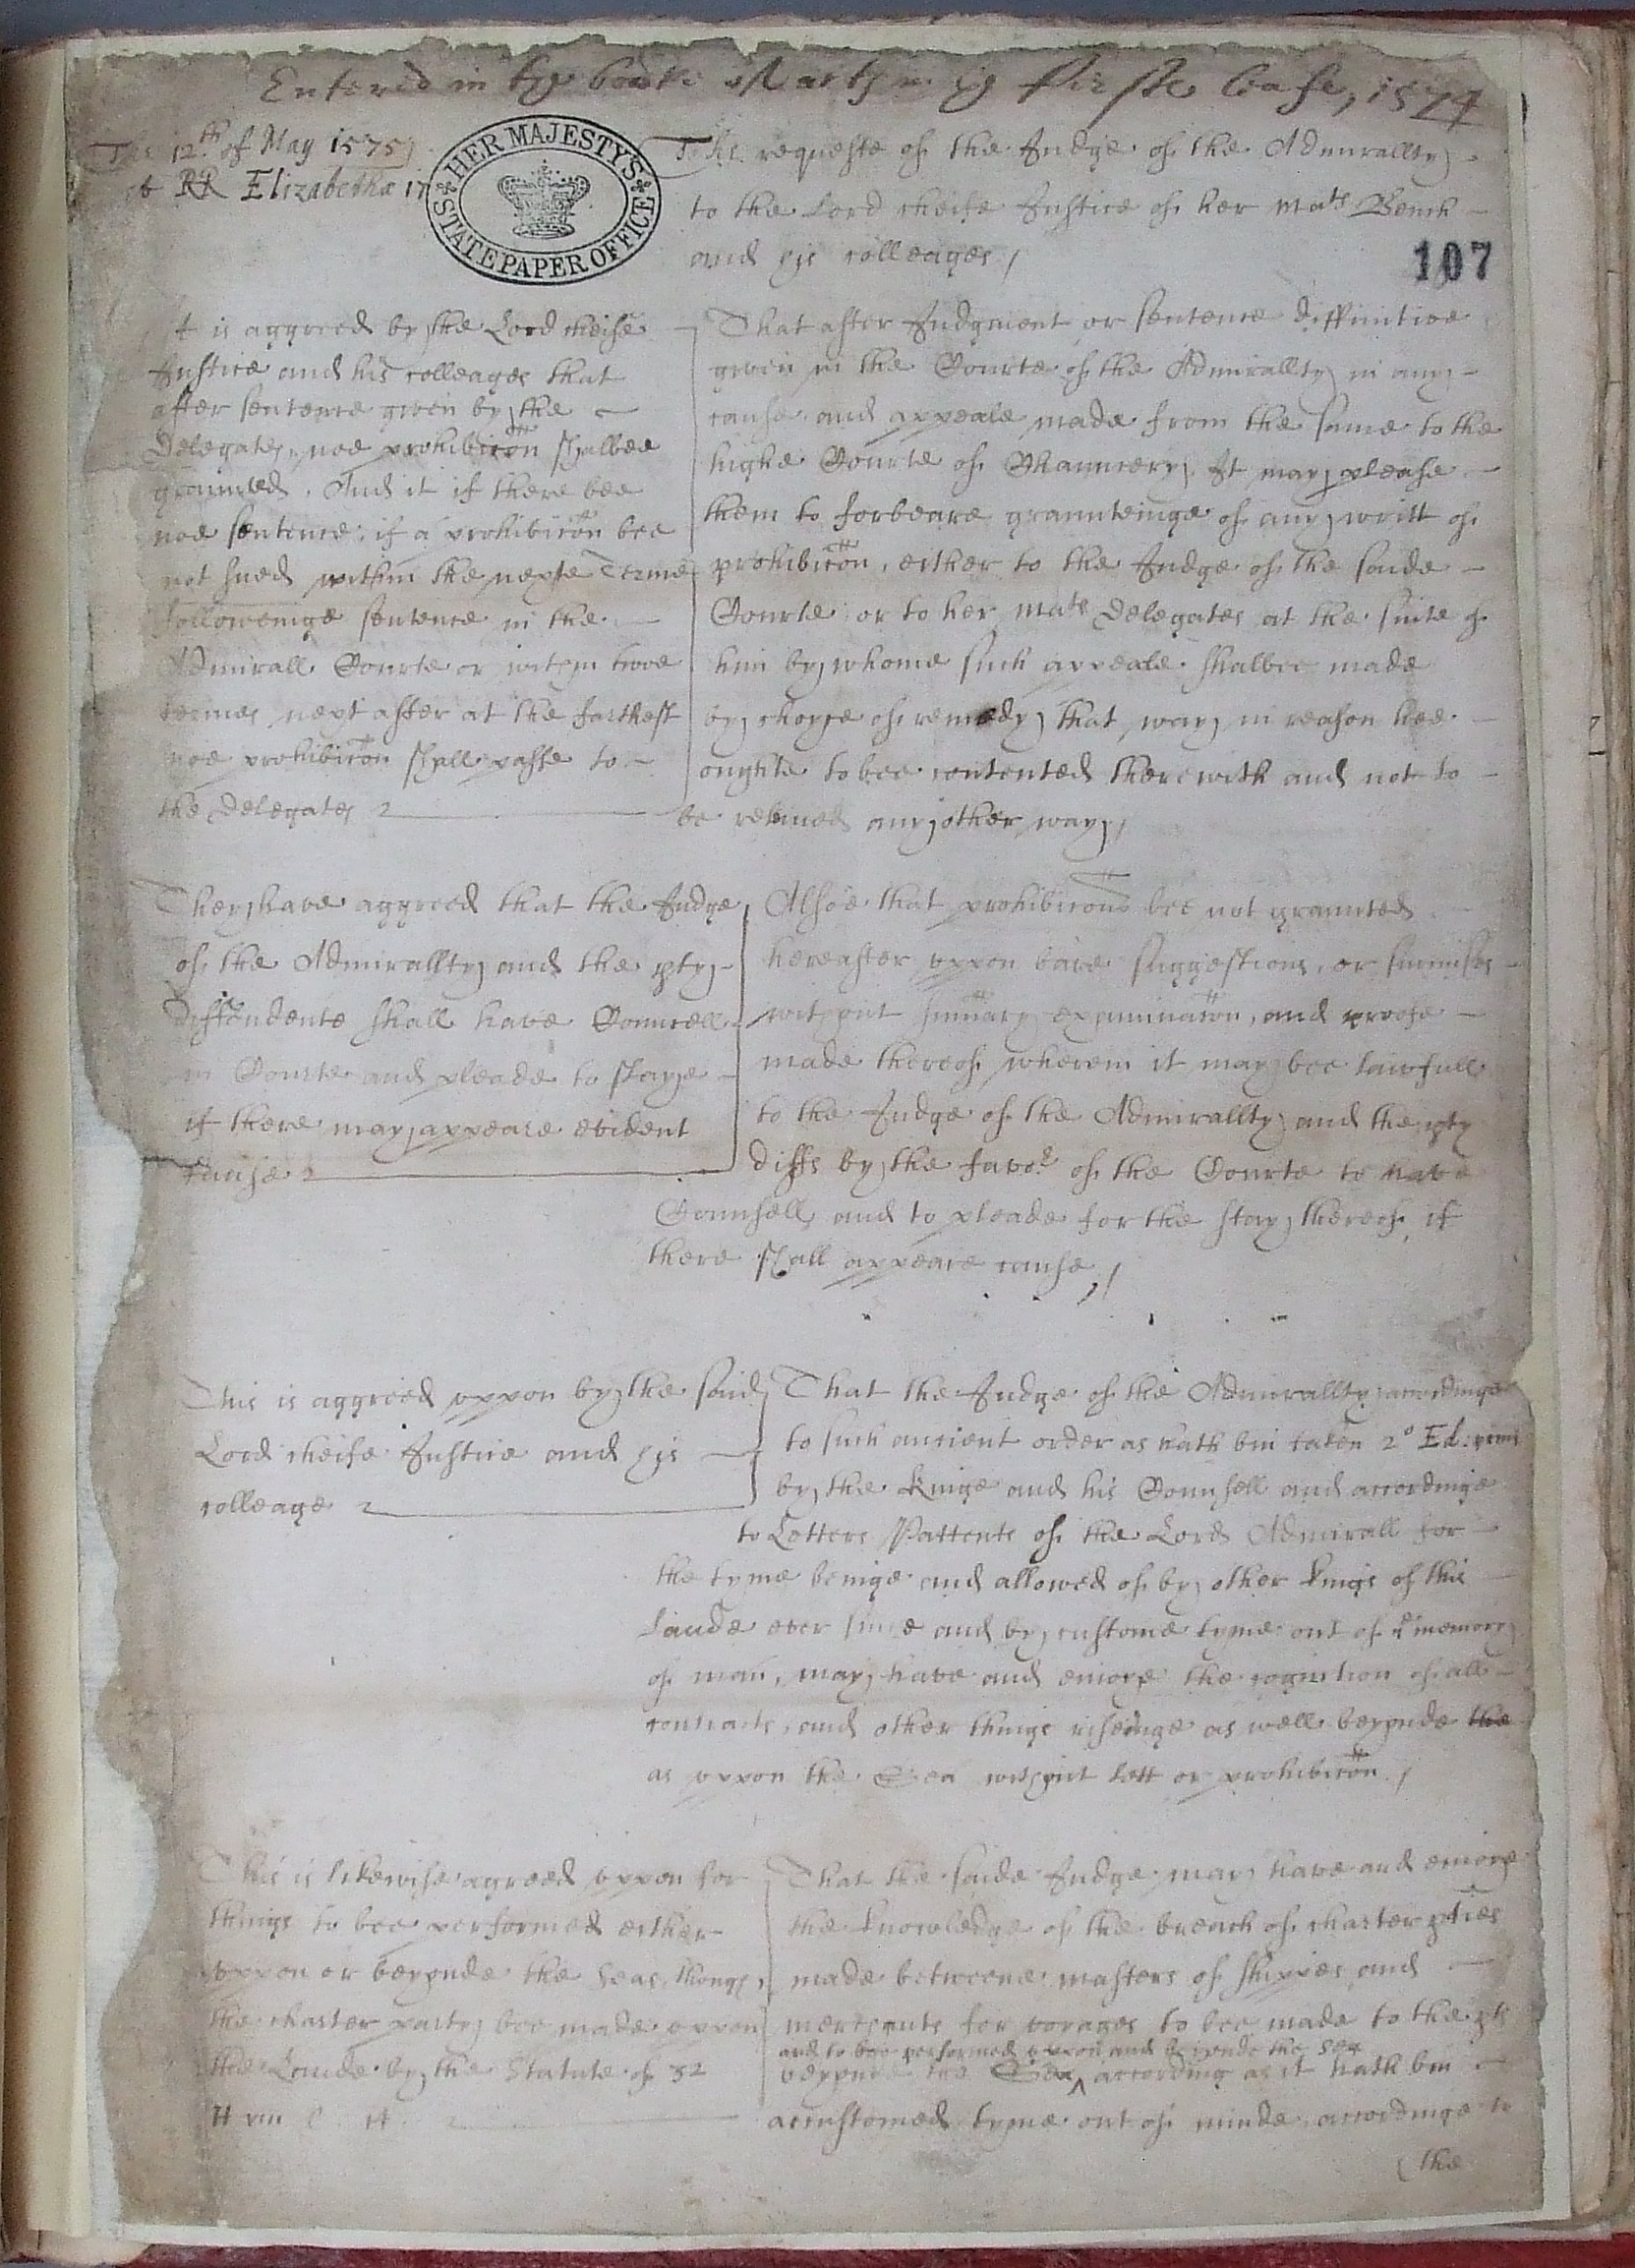 Entered in the booke of Marten his firste Case, 1574
The 12.th of May 1575
et RR Elizabethæ 17
HER MAJESTY'S
STATE PAPER OFFICE
The requeste of the Judge of the Admirallty
to the Lord cheife Justice of her Mats Bench
and his colleages /
107
It is aggreed by the Lord cheife
Justice and his colleages that
after sentence given by the
Delegates, noe prohibicon shalbee
graunted. And it if there bee
noe sentence: if a prohibicon bee
not sued within the nexte Terme
followeinge sentence in the
Admirall Courte or within twoe
termes next after at the farthest
noe prohibicon shall passe to
the Delegates
That after Judgment or sentence diffinitive
given in the Courte of the Admirallty in any
cause and appeale made from the same to the
highe Courte of Chauncery. It may please
them to forbeare graunteinge of any writt of
prohibicon, either to the Judge of the saide
Courte or to her Mats Delegates at the suite of
him by whome such appeale shalbee made
by choyse of remedy that way in reason hee
oughte to bee contented therewith and not to
be releived any other way /
They have aggreed that the Judge
of the Admirallty and the pty
deffendente shall have Councell
in Courte and pleade to staye
if there may appeare evident
cause
Alsoe that prohibicons bee not graunted
hereafter uppon bare suggestions, or surmises
without sumary examinacon, and proofe
made thereof wherein it may bee lawfull
to the Judge of the Admirallty and the pty
deffs by the favor of the Courte to have
Counsell and to pleade for the stay thereof if
there shall appeare cause /
This is aggreed uppon by the said
Lord cheife Justice and his
colleage
That the Judge of the Admirallty accordinge
to such ancient order as hath bin taken 2o Ed: primi
by the Kinge and his Counsell and accordinge
to Letters Pattents of the Lord Admirall for
the tyme beinge and allowed of by other Kings of this
Lande ever since and by custome tyme out of memory
of man, may have and enioye the cognition of all
contracts, and other things riseinge as well beyonde the
as uppon the Sea without lett or prohibicon /
This is likewise agreed uppon for
things to bee performed either
uppon or beyonde the seas, though
the charter party bee made uppon
the Lande by the Statute of 32
H viii C 14
That the saide Judge may have and enioye
the knowledge of the breach of charter pties
made betweene masters of shippes and
merchants for voyages to bee made to the pts
and to bee performed uppon and beyonde the Sea
beyonde the Sea ^ according as it hath bin
accustomed tyme out of minde accordinge to
the